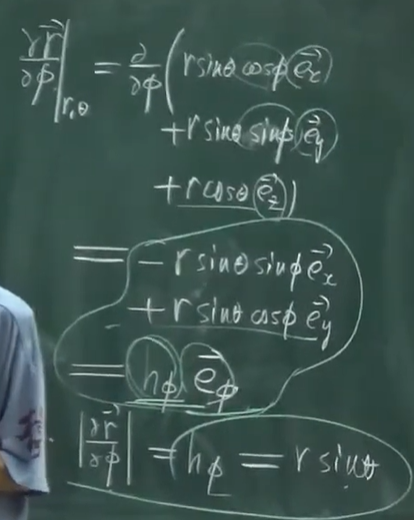 ∂r⃗/∂ϕ|r,θ = ∂/∂ϕ (r sinθ cosϕ e⃗x
+ r sinθ sinϕ e⃗y
+ r cosθ e⃗z)
= − r sinθ sinϕ e⃗x
+ r sinθ cosϕ e⃗y
= hϕ e⃗ϕ
|∂r⃗/∂ϕ| = hϕ = r sinθ